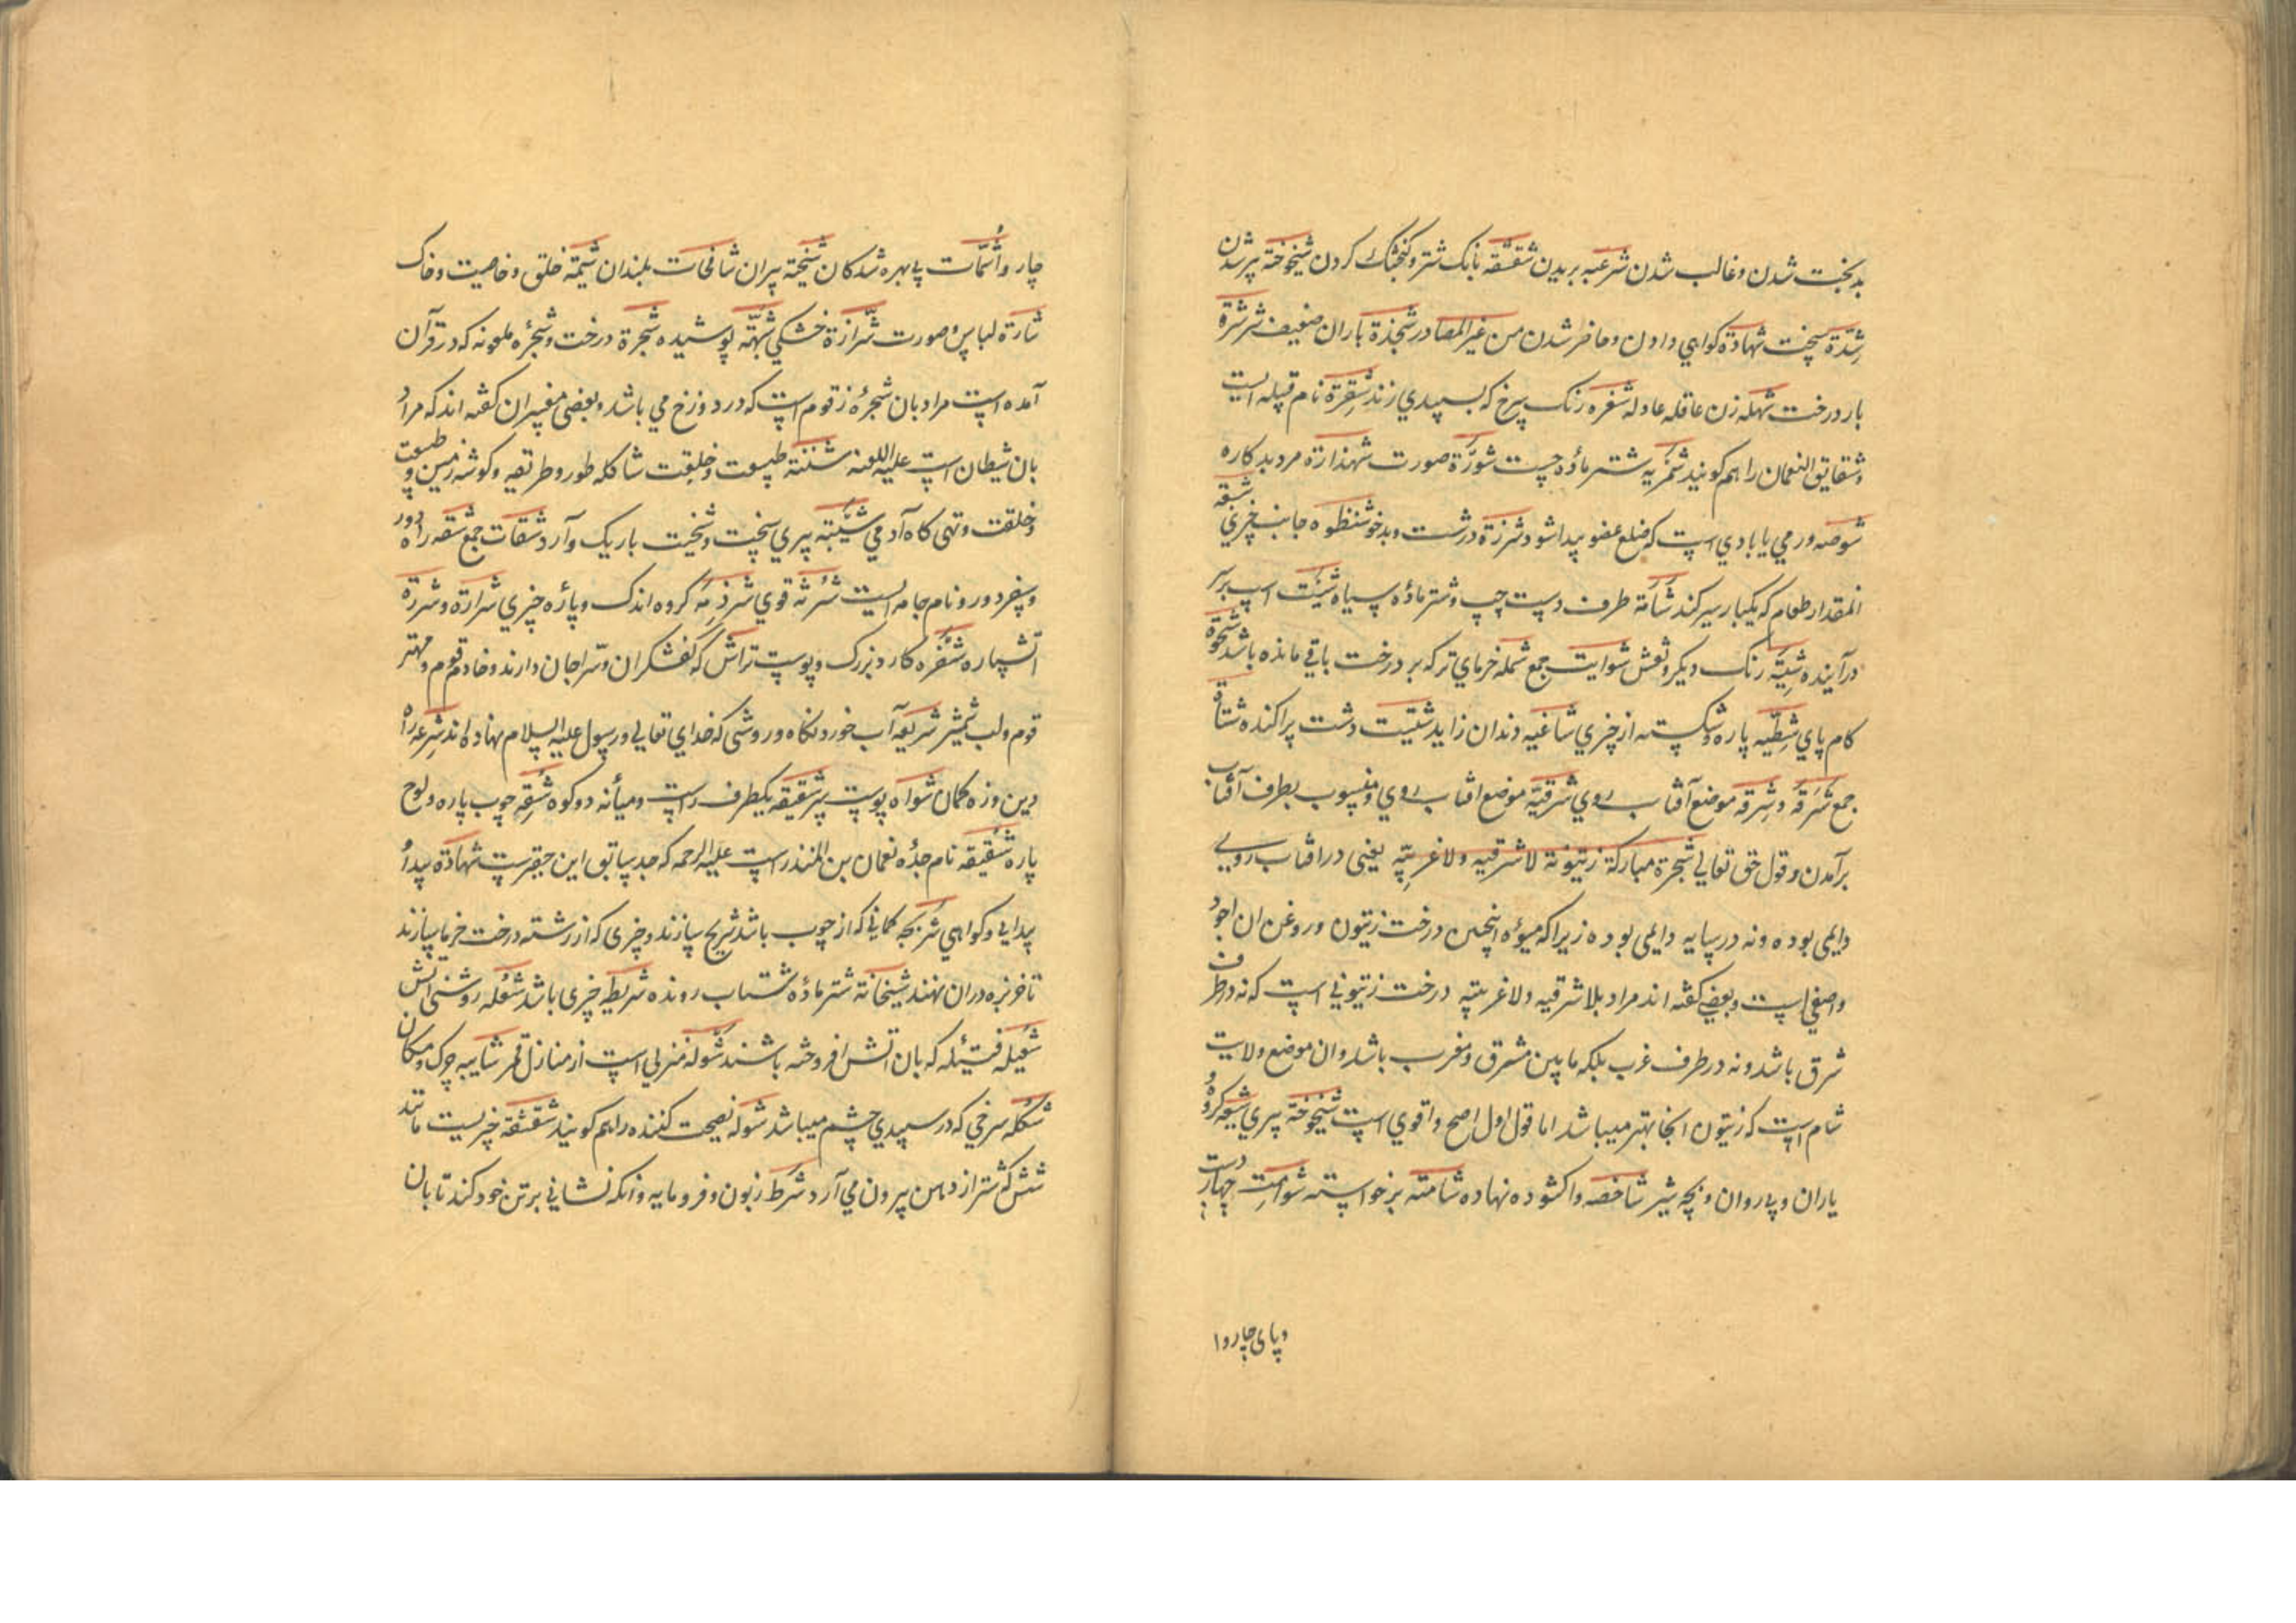 بدبخت شدن و غالب شدن شرعبه بریدن شقشقه بانک شتر و کنجشک کردن شیخوخة پیر شدن
شدة سخت شهادة کواهي دادن و حاضر شدن من غیر المصادر شجذة باران ضعیف شرشرة
بار درخت شهله زن عاقله عادله شقره رنک سرخ که بسپیدي زند شقرة نام قبیله ایست
و شقایق النعمان را هم کویند شمریه شتر مادۀ چست شورة صورت شهذارة مرد بدکاره
شوصه ورمي یا بادي است که ضلع عضو پیدا شود شرزة درشت و بدخو شنظوه جانب چیزي شبقه
المقدار طعام که یکبار سیر کند شأمة طرف دست چپ و شتر مادۀ سیاه شیئت اسب بر
درآینده شیة رنک دیکر و نعش شوایت جمع شمله خرماي تر که بر درخت باقي مانده باشد شحوة
کام پاي شظیه پاره و شکسته از چیزي شاغیه دندان زاید شتیت دشت پراکنده شتاة
جمع شرقة و شرقه موضع آفتاب روي شرقیة موضع افتاب روي و منسوب بطرف آفتاب
برآمدن و قول حق تعالي شجرة مبارکة زیتونة لا شرقیه ولا غربیّه یعنی در افتاب رویی
دایمی بوده و نه در سایه دایمی بوده زیرا که میوۀ اینچنین درخت زیتون و روغن ان اجود
و اصفی است و بعضي کفته اند مراد بلا شرقیه ولا غربیته درخت زیتوني است که نه در طرف
شرق باشد و نه در طرف غرب بلکه ما بین مشرق و مغرب باشد و ان موضع ولایت
شام است که زیتون انجا بهتر میباشد اما قول اول اصح و اقوي است شیخوخة پیري شیعه کروه
یاران و پیاروان و بچه شیر شاخصه واکشوده نهاده شامته برخواسته شوامت دست چهار
و پای چاروا
چاروا شمات بي بهره شدکان شیخة پیران شافحات بلندان شیمة خلق و خاصیت و خاک
شارة لباس و صورت شرازة خشکي شبهة پوشیده شجرة درخت و شجرۀ ملعونه که در قرآن
آمده است مراد بان شجرۀ زقوم است که در دوزخ مي باشد و بعضی مفسران کفته اند که مراد
بان شیطان است علیه اللعنه شنشنة طبیعت و خلقت شاکله طور و طریقه و کوشه زمین و طبیعت
و خلقت و تهی کاه آدمي شیبته پیري سخت و شخیت باریک و آرد شقات جمع شقه راه دور
و سفر دور و نام جامه ایست شرثة قوي شرذمة کروه اندک و پارۀ چیزي شرارة و شررة
اتش پاره شفره کارد بزرک و پوست تراش که کفشکران و سراجان دارند و خادم قوم و مهتر
قوم و لب شمشیر شریعه آب خورد نکاه و روشی که خداي تعالي و رسول علیه السلام نهاده اند شرعه راه
دین و زه کمان شواه پوست سر شقیقه یکطرف راست و میانه دو کوه شقه چوب پاره و لوح
پاره شقیقه نام جدۀ نعمان بن المنذر است علیه الرحمه که جد سابق این حقیرست شهادة پیدا
پیدایي و کواهي شریجه کماني که از چوب باشد شریح سازند و چیزی که از رشته درخت خرما سازند
تا خربزه دران نهند شیخانة شتر مادۀ شتاب رونده شریطه چیزی باشد شعله روشنی اتش
شعیله فتیله که بان اتش افروخته باشند شوله منزلي است از منازل قمر شایبه چرک و مکان
شکله سرخي که در سپیدي چشم میباشد شوله نصیحت کننده را هم کویند شقشقة چیزیست مانند
شش که شتر از دهن بیرون مي آرد شرط زبون و فرومایه و انکه نشاني بر تن خود کند تا بان